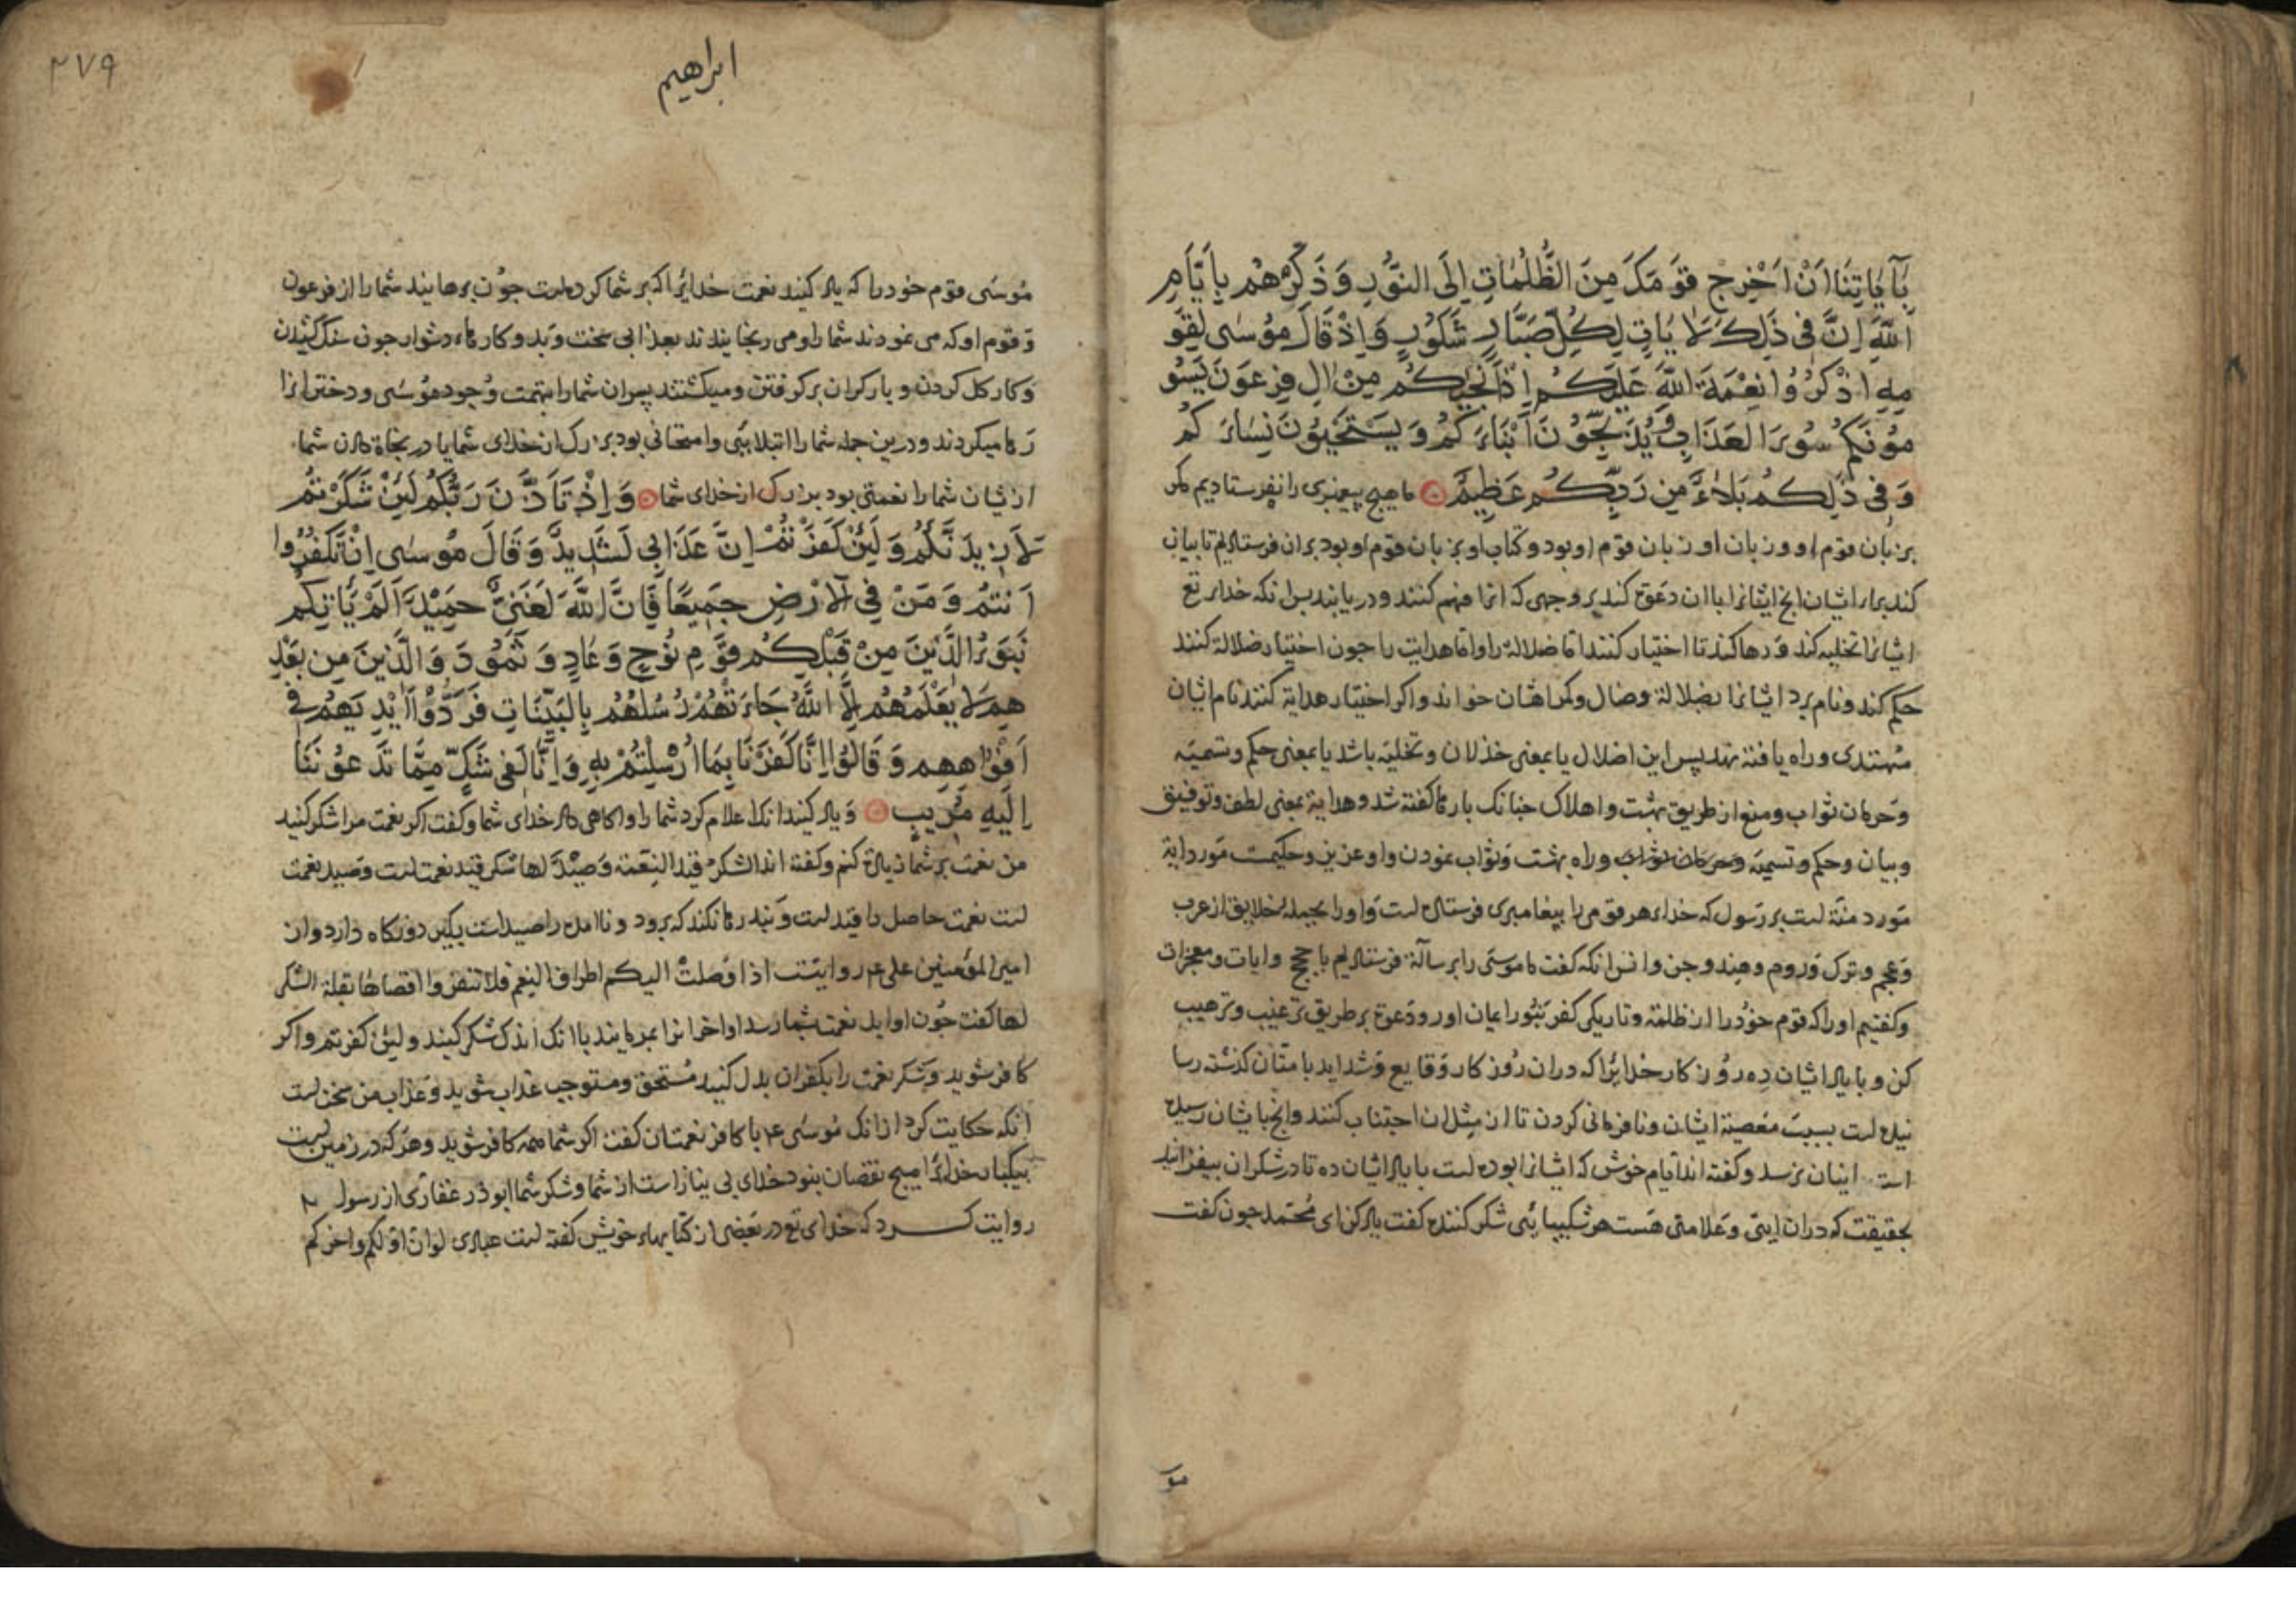 بِآيَاتِنَا اَنْ اَخْرِجْ قَوْمَكَ مِنَ الظُّلُمَاتِ اِلَى النُّورِ وَذَكِّرْهُمْ بِاَيَّامِ
اللّهِ اِنَّ فِى ذَلِكَ لَا يَاتٍ لِكُلِّ صَبَّارٍ شَكُورٍ وَاِذْ قَالَ مُوسَى لِقَوْ
مِهِ اذْكُرُوا نِعْمَةَ اللّهِ عَلَيْكُمْ اِذْ اَنْجَيكُمْ مِنْ الِ فِرْعَوْنَ يَسُو
مُونَكُمْ سُوءَ الْعَذَابِ وَيُذَبِّحُونَ اَبْنَاءَكُمْ وَيَسْتَحْيُونَ نِسَاءَكُمْ
وَفِى ذَلِكُمْ بَلَاءٌ مِن رَبِّكُمْ عَظِيمٌ ما هيچ پيغمبرى را نفرستاديم مكر
بزبان قوم او و زبان او زبان قوم او بود و كتاب او بزبان قوم او بود بران فرستاديم تا بيان
كند براى ايشان انچ ايشانرا باان دعوة كند بر وجهى كه انرا فهم كنند و دريابند پس انكه خداى تع
ايشانرا تخليه كند و رها كند تا اختيار كنند اما ضلالة را و اما هدايت را جون اختيار ضلالة كنند
حكم كند و نام برد ايشانرا بضلالة و ضال و كمراهشان خواند و اكر اختيار هداية كنند نام ايشان
مهتدى و راه يافته نهد پس اين اضلال يا بمعنى خذلان و تخليه باشد يا بمعنى حكم و تسميه
و حرمان ثواب و منع از طريق بهشت و اهلاك جنانك بارها كفته شد و هداية بمعنى لطف و توفيق
و بيان و حكم و تسميه و راه بهشت و ثواب نمودن و او عزيز و حكيمست مورد اية
مورد منة است بر رسول كه خداى هر قومى را پيغامبرى فرستاده است و او را بجمله خلايق از عرب
و عجم و ترك و روم و هند و جن و انس انكه كفت ما موسى را برسالة فرستاديم با حجج و ايات و معجزات
و كفتيم او را كه قوم خود را از ظلمة و تاريكى كفر بنور ايمان اور و دعوة بر طريق ترغيب و ترهيب
كن و با ياد ايشان ده روزكار خدايرا كه دران روزكار وقايع و شدايد بامتان كذشته رسا
نيده است بسبب معصية ايشان و نافرمانى كردن تا از مثل ان اجتناب كنند و انچ بايشان رسيده
است اينان نرسد و كفته اند ايام خوش كه ايشانرا بوده است با ياد ايشان ده تا در شكران بيفزايند
بحقيقت كه دران ايتى و علامتى هست هر شكيبايى شكر كننده كفت ياد كن اى محمد جون كفت
ابراهيم
٢٧٩
موسى قوم خود را كه ياد كنيد نعمت خدايرا كه بر شما كرده است جون برهانيد شما را از فرعون
و قوم او كه مى نمودند شما را و مى رنجانيدند بعذابى سخت و بد و كارهاى دشوار جون سنك كشيدن
و كار كل كردن و بار كران بر كرفتن و ميكشتند پسران شما را بتهمت وجود موسى و دخترانرا
رها ميكردند و درين جمله شما را ابتلايى و امتحانى بود بزرك از خداى شما يا در نجاة دادن شما
از يشان شما را نعمتى بود بزرك از خداى شما وَاِذْ تَاَذَّنَ رَبُّكُمْ لَئِنْ شَكَرْتُمْ
لَاَزِيدَنَّكُمْ وَلَئِنْ كَفَرْتُمْ اِنَّ عَذَابِى لَشَدِيدٌ وَقَالَ مُوسَى اِنْ تَكْفُرُوا
اَنْتُمْ وَمَنْ فِى الْاَرْضِ جَمِيعًا فَاِنَّ اللّهَ لَغَنِىٌّ حَمِيْدٌ اَلَمْ يَاْتِكُمْ
نَبَؤُ الَّذِينَ مِنْ قَبْلِكُمْ قَوْمِ نُوحٍ وَعَادٍ وَثَمُودَ وَالَّذِينَ مِن بَعْدِ
هِمْ لَا يَعْلَمُهُمْ اِلَّا اللّهُ جَاءَتْهُمْ رُسُلُهُمْ بِالْبَيِّنَاتِ فَرَدُّوْا اَيْدِيَهُمْ فِى
اَفْوَاهِهِمْ وَقَالُوا اِنَّا كَفَرْنَا بِمَا اُرْسِلْتُمْ بِهِ وَاِنَّا لَفِى شَكٍّ مِمَّا تَدْعُونَنَا
اِلَيْهِ مُرِيبٍ و ياد كنيد انك اعلام كرد شما را و اكاهى داد خداى شما و كفت اكر نعمت مرا شكر كنيد
من نعمت بر شما زيادة كنم و كفته اند الشكر قيد النعمة و صيد لها شكر قيد نعمت است و صيد نعمت
است نعمت حاصل را قيد است و بند رها نكند كه برود و ناامده را صيد است بكيرد و نكاه دارد و از
امير المؤمنين على ع م روايتست اذا وصلت اليكم اطراف النعم فلا تنفروا اقصاها بقلة الشكر
لها كفت جون اوايل نعمت بشما رسد اواخر انرا مرمانيد باانك اندك شكر كنيد و لئن كفرتم و اكر
كافر شويد و شكر نعمت را بكفران بدل كنيد مستحق و مستوجب عذاب شويد و عذاب من سخت است
انكه حكايت كرد از انك موسى ع م با كافر نعمتان كفت اكر شما همه كافر شويد و هر كه در زمين است
بيكبار خدايرا هيچ نقصان بنود خداى بى نياز است از شما و شكر شما ابوذر غفارى از رسول
روايت كرد كه خداى تع در بعضى از كتابهاى خويش كفته است عبادى لو ان اولكم و اخركم